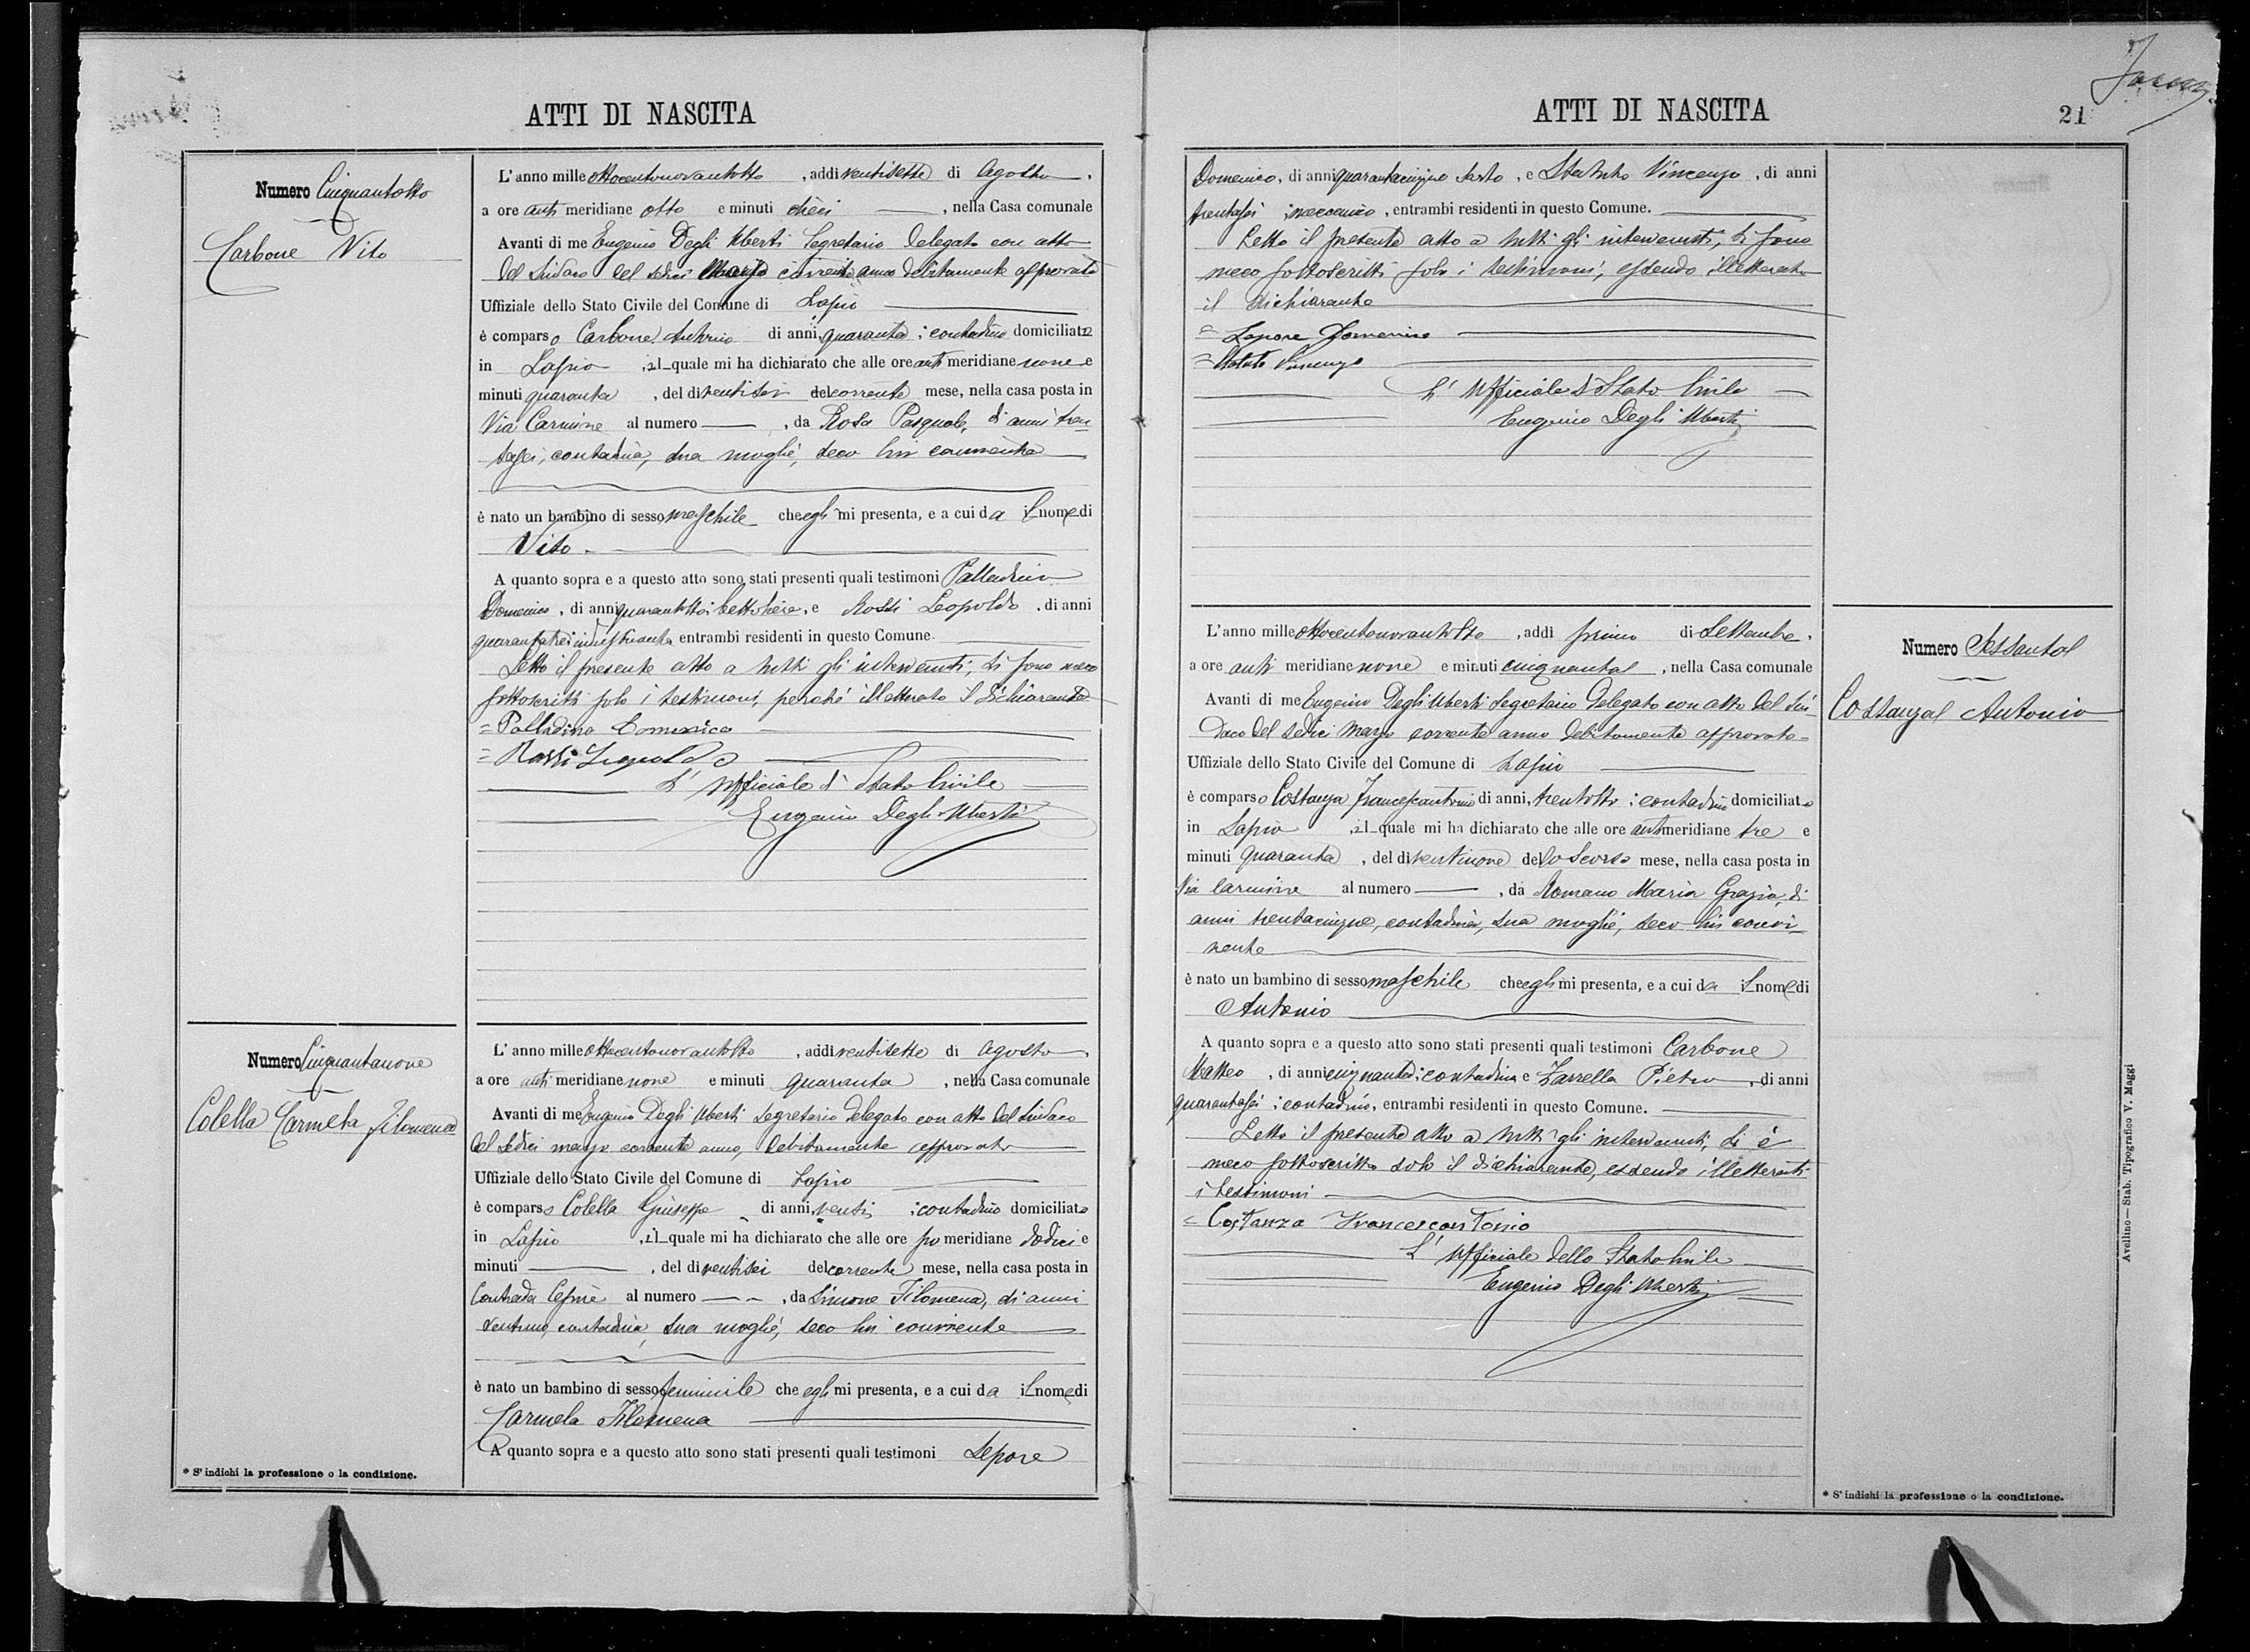 ATTI DI NASCITA
Numero Cinquantotto
Carbone Vito
L'anno mille ottocentonovantotto, addi ventisette di Agosto,
a ore anti meridiane otto e minuti dieci, nella Casa comunale
Avanti di me Eugenio Degli Uberti Segretario Delegato con atto
del Sindaco del sedici Marzo corrente anno debitamente approvato
Uffiziale dello Stato Civile del Comune di Lapio
è comparso Carbone Antonio di anni quaranta; contadino domiciliato
in Lapio, il quale mi ha dichiarato che alle ore anti meridiane nove e
minuti quaranta, del dì ventisei del corrente mese, nella casa posta in
Via Carmine al numero, da Rosa Pasquale, di anni tren
tasei, contadina, sua moglie, seco lui convivente
è nato un bambino di sesso maschile che egli mi presenta, e a cui da il nome di
Vito
A quanto sopra e a questo atto sono stati presenti quali testimoni Palladino
Domenico, di anni quarantotto; bettoliere, e Rossi Leopoldo, di anni
quarantatre; industriante entrambi residenti in questo Comune.
Letto il presente atto a tutti gli intervenuti, si sono meco
sottoscritti solo i testimoni, perché illetterato il dichiarante
= Palladino Domenico
= Rossi Leopoldo
L'Ufficiale di Stato Civile
Eugenio Degli Uberti
Numero Cinquantanove
Colella Carmela Filomena
L'anno mille ottocentonovantotto, addi ventisette di Agosto,
a ore anti meridiane nove e minuti quaranta, nella Casa comunale
Avanti di me Eugenio Degli Uberti Segretario Delegato con atto del Sindaco
del sedici marzo corrente anno, debitamente approvato
Uffiziale dello Stato Civile del Comune di Lapio
è comparso Colella Giuseppe, di anni venti; contadino domiciliato
in Lapio, il quale mi ha dichiarato che alle ore po meridiane dodici e
minuti, del dì ventisei del corrente mese, nella casa posta in
Contrada al numero, da Simone Filomena, di anni
ventuno, contadina, sua moglie, seco lui convivente
è nato un bambino di sesso femminile che egli mi presenta, e a cui da il nome di
Carmela Filomena
A quanto sopra e a questo atto sono stati presenti quali testimoni Lepore
* S'indichi la professione o la condizione.
ATTI DI NASCITA
21
Domenico, di anni quarantacinque sarto, e Statuto Vincenzo, di anni
trentasei; meccanico, entrambi residenti in questo Comune.
Letto il presente atto a tutti gli intervenuti, si sono
meco sottoscritti solo i testimoni, essendo illetterato
il dichiarante
= Lepore Domenico
= Statuto Vincenzo
L'Ufficiale di Stato Civile
Eugenio Degli Uberti
Numero Sessanta
Costanza Antonio
L'anno mille ottocentonovantotto, addi primo di Settembre,
a ore anti meridiane nove e minuti cinquanta, nella Casa comunale
Avanti di me Eugenio Degli Uberti Segretario Delegato con atto del Sin
daco del sedici Marzo corrente anno debitamente approvato =
Uffiziale dello Stato Civile del Comune di Lapio
è comparso Costanza Francescantonio di anni, trentotto; contadino domiciliato
in Lapio, il quale mi ha dichiarato che alle ore antimeridiane tre e
minuti quaranta, del dì ventinove dello scorso mese, nella casa posta in
Via Carmine al numero, da Romano Maria Grazia, di
anni trentacinque, contadina, sua moglie, seco lui convi
vente
è nato un bambino di sesso maschile che egli mi presenta, e a cui da il nome di
Antonio
A quanto sopra e a questo atto sono stati presenti quali testimoni Carbone
Matteo, di anni cinquanta; contadino e Zarrella Pietro, di anni
quarantasei; contadino, entrambi residenti in questo Comune.
Letto il presente atto a tutti gli intervenuti, si è
meco sottoscritto solo il dichiarante, essendo illetterati
i testimoni
= Costanza Francescantonio
L'Ufficiale dello Stato Civile
Eugenio Degli Uberti
* S'indichi la professione o la condizione.
Avellino — Stab. Tipografico V. Maggi